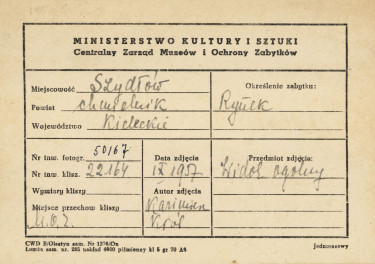 MINISTERSTWO KULTURY I SZTUKI
Centralny Zarząd Muzeów i Ochrony Zabytków
Miejscowość Szydłów
Powiat chmielnik
Województwo Kieleckie
Określenie zabytku:
Rynek
Nr inw. fotogr. 50167
Nr inw. klisz. 22164
Wymiary kliszy
Miejsce przechow kliszy
M.O.Z.
Data zdjęcia
IX 1957
Autor zdjęcia
Kazimierz
Król
Przedmiot zdjęcia:
Widok ogólny
CWD B/Olsztyn zam. Nr 1376/Oz
Lumin zam. nr. 285 nakład 4000 piśmienny kl 5 gr 70 A6
jednorazowy